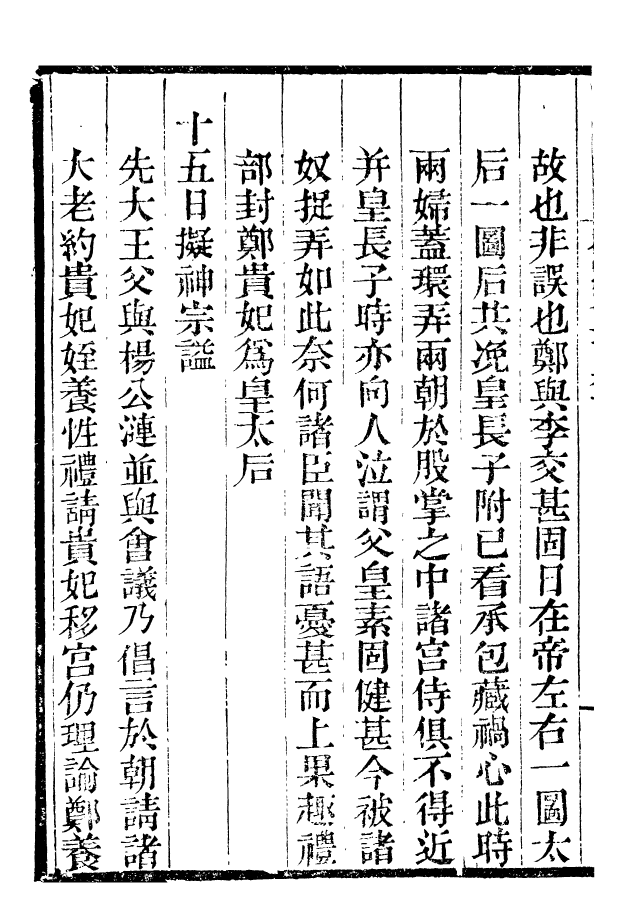 故也非誤也鄭與李交甚固日在帝左右一圖太
后一圖后共浼皇長子附已看承包藏禍心此時
兩婦蓋環弄兩朝於股掌之中諸宫侍俱不得近
并皇長子時亦向人泣謂父皇素固健甚今被諸
奴捉弄如此奈何諸臣聞其語憂甚而上果趣禮
部封鄭貴妃爲皇太后
十五日擬神宗謚
先大王父與楊公漣並與會議乃倡言於朝請諸
大老約貴妃姪養性禮請貴妃移宫仍理諭鄭養